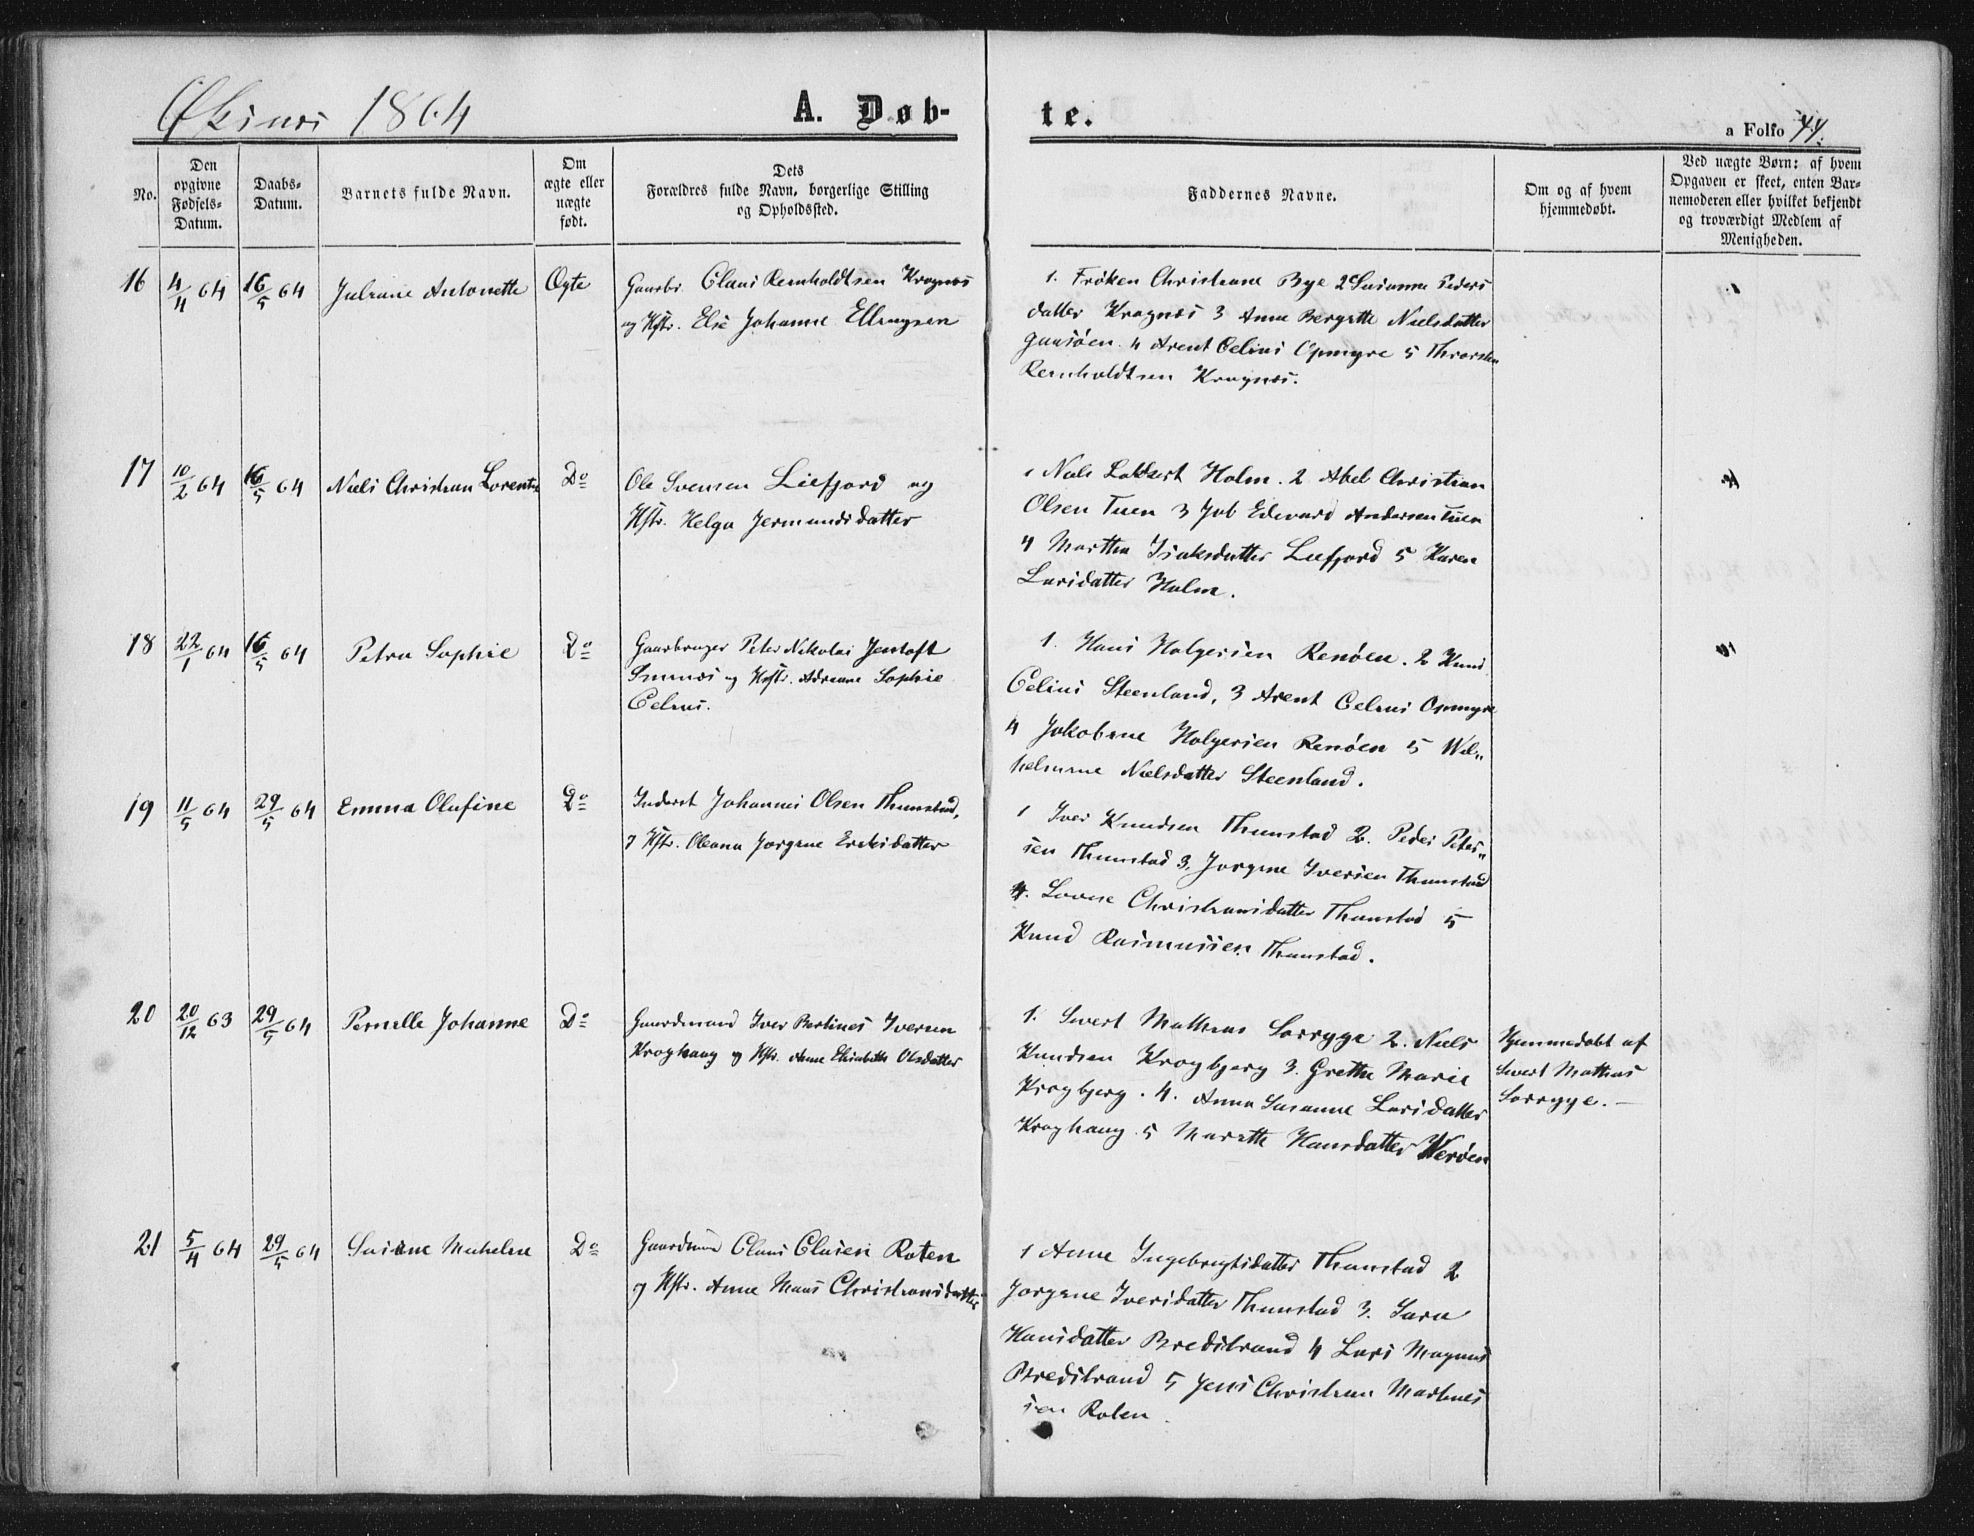 Øksnes 1864
A. Døb-
te.
a Folio 44.
No.
Den opgivne Fødsels-Datum.
Daabs-Datum.
Barnets fulde Navn.
Om ægte eller uægte født.
Dets Forældres fulde Navn, borgerlige Stilling og Opholdssted.
Faddernes Navne.
Om og af hvem hjemmedøbt.
Ved uægte Børn: af hvem Opgaven er skeet, enten Barnemoderen eller hvilket bekjendt og troværdigt Medlem af Menigheden.
16 4/4 64 16/5 64 Juliane Antonette Ægte
Gaarbr. Claus Reinholdtsen Kragnes
og Hstr. Else Johanne Ellingsen
1. Frøken Christiane Bye 2 Susanne Peders
datter Kragnes 3 Anne Bergitte Nielsdatter
Gaasøen. 4 Arent Celius Opmyre 5 Thorsten
Reinholdtsen Kragnes.
17 10/2 64 16/5 64 Niels Christian Lorents Do
Ole Svensen Liefjord og
Hstr. Helga Jermundsdatter
1 Niels Lokkert Holm. 2 Abel Christian
Olsen Tuen 3 Job Edevard Andersen Tuen
4 Martha Isaksdatter Liefjord 5 Karen
Larsdatter Holm.
18 22/1 64 16/5 64 Petra Sophie Do
Gaarbruger Peter Nikolai Jentoft
Smines og Hstr. Adriane Sophie
Celius.
1. Hans Holgersen Renøen. 2 Knud
Celius Steenland, 3 Arent Celius Opmyre
4 Jakobine Holgersen Renøen 5 Wil-
helmine Nielsdatter Steenland.
19 11/5 64 29/5 64 Emma Olufine Do
Inderst Johannes Olsen Thunstad,
og Hstr. Oleana Jørgine Eriksdatter
1 Iver Knudsen Thunstad 2. Peder Peter-
sen Thunstad 3. Jørgine Iversen Thunstad
4. Lovise Christiansdatter Thunstad 5
Knud Rasmussen Thunstad.
20 20/12 63 29/5 64 Pernelle Johanne Do
Gaardmand Iver Bertines Iversen
Kroghaug og Hstr. Anne Elisabeth Olsdatter
1. Sivert Mathias Sorryge 2. Niels
Knudsen Krogbjerg 3. Grethe Marie
Krogbjerg. 4. Anna Susanne Larsdatter
Kroghaug 5 Marith Hansdatter Nerøen
Hjemmedøbt af
Sivert Mathias
Sorryge. —
21 5/4 64 29/5 64 Susane Mekeline Do
Gaardmd Claus Clausen Roten
og Hstr. Anne Maas Christiansdatter
1 Anne Ingebrigtsdatter Thunstad 2
Jørgine Iversdatter Thunstad 3. Sara
Hansdatter Bredstrand 4 Lars Magnus
Bredstrand 5 Jens Christian Martines
sen Roten.